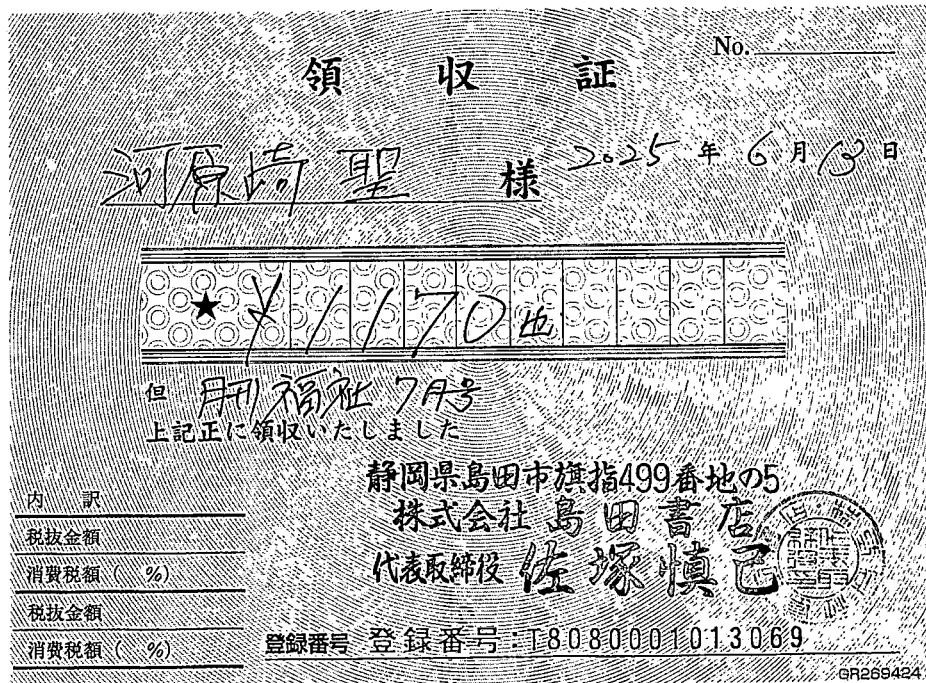 No.
領収証
河原崎 聖 様 2025年6月13日
★ ¥1170也
但 月刊福祉 7月号
上記正に領収いたしました
静岡県島田市旗指499番地の5
株式会社 島田書店
代表取締役 佐塚慎己
内 訳
税抜金額
消費税額( %)
税抜金額
消費税額( %)
登録番号 登録番号:T8080001013069
GR269424